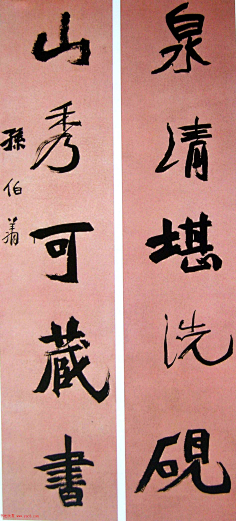 泉清堪洗硯
山秀可藏書
孫伯翔